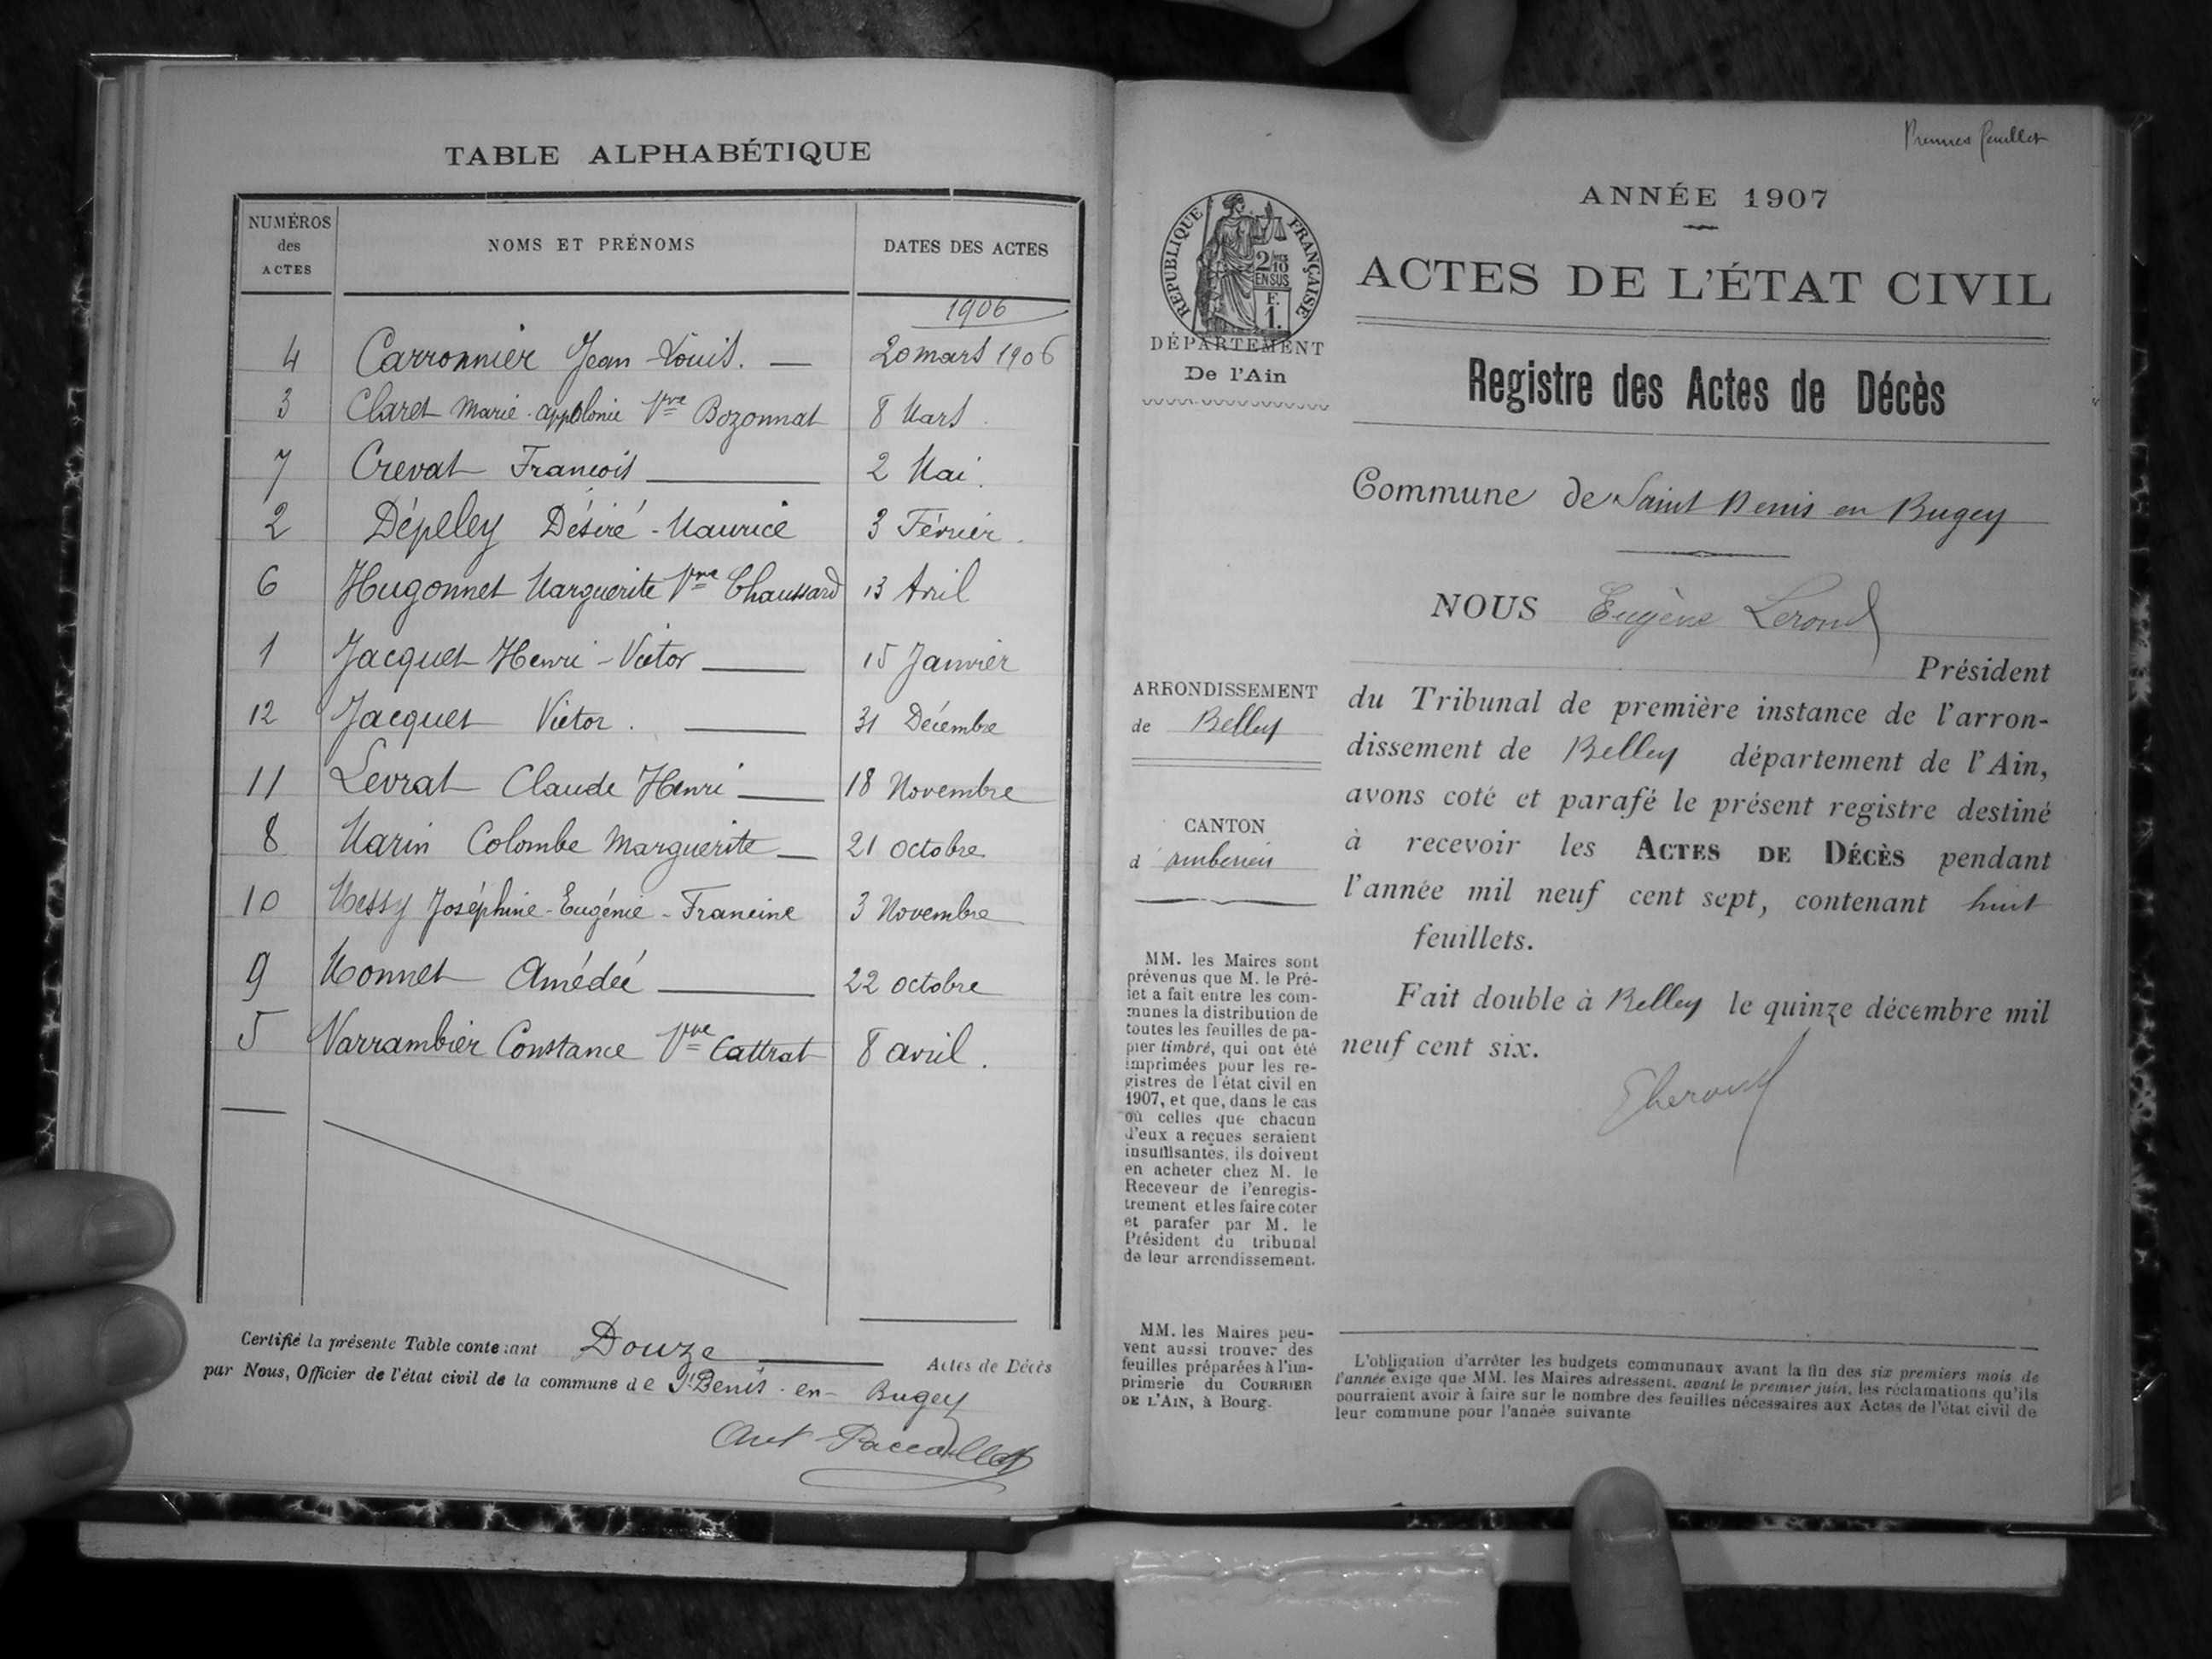 TABLE ALPHABÉTIQUE
NUMÉROS des ACTES
NOMS ET PRÉNOMS
DATES DES ACTES
1906
4 Carronnier Jean Louis. 20 mars 1906
3 Claret Marie-appolonie Vve Bozonnat 8 Mars
7 Crevat François 2 Mai.
2 Dépeley Désiré-Maurice 3 Février.
6 Hugonnet Marguerite Vve Chaussard 13 Avril
1 Jacquet Henri-Victor 15 Janvier
12 Jacquet Victor. 31 Décembre
11 Levrat Claude Henri 18 Novembre
8 Marin Colombe Marguerite 21 octobre
10 Messy Joséphine-Eugénie-Francine 3 Novembre
9 Monnet Amédée 22 octobre
5 Varrambier Constance Vve Cattrat 8 avril.
Certifié la présente Table contenant Douze Actes de Décès
par Nous, Officier de l'état civil de la commune de St Denis-en-Bugey
Premier feuillet
ANNÉE 1907
RÉPUBLIQUE FRANÇAISE
2/10 EN SUS
F. 1.
ACTES DE L'ÉTAT CIVIL
DÉPARTEMENT
De l'Ain
Registre des Actes de Décès
Commune de Saint Denis en Bugey
NOUS Eugène Lerond
Président
du Tribunal de première instance de l'arron-
dissement de Belley département de l'Ain,
avons coté et parafé le présent registre destiné
à recevoir les ACTES DE DÉCÈS pendant
l'année mil neuf cent sept, contenant huit
feuillets.
Fait double à Belley le quinze décembre mil
neuf cent six.
ARRONDISSEMENT
de Belley
CANTON
d'ambérieu
MM. les Maires sont
prévenus que M. le Pré-
fet a fait entre les com-
munes la distribution de
toutes les feuilles de pa-
pier timbré, qui ont été
imprimées pour les re-
gistres de l'état civil en
1907, et que, dans le cas
où celles que chacun
d'eux a reçues seraient
insuffisantes, ils doivent
en acheter chez M. le
Receveur de l'enregis-
trement et les faire coter
et parafer par M. le
Président du tribunal
de leur arrondissement.
MM. les Maires peu-
vent aussi trouver des
feuilles préparées à l'im-
primerie du COURRIER
DE L'AIN, à Bourg.
L'obligation d'arrêter les budgets communaux avant la fin des six premiers mois de
l'année exige que MM. les Maires adressent, avant le premier juin, les réclamations qu'ils
pourraient avoir à faire sur le nombre des feuilles nécessaires aux Actes de l'état civil de
leur commune pour l'année suivante